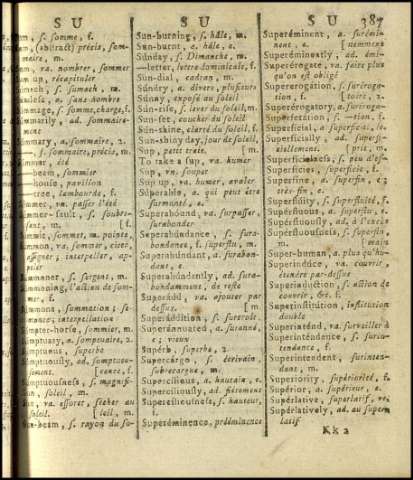 S U
S U
S U 387
s. somme, f.
(abstract) précis, som-
maire, m.
va. nombrer, sommer
up, récapituler
s. sumach, m.
a. sans nombre
s. somme, charge, f.
ad. sommaire-
ment
a. sommaire, 2.
s. sommaire, précis, m.
été
-beam, sommier
pavillon
-tree, lambourde, f.
vn. passer l'été
-fault, s. soubre-
saut, m.
sommet, m. pointe,
va. sommer, citer,
assigner; interpeller, ap-
s. sergent, m.
l'action de som-
mer, f.
s. sommation; se-
interpellation
-horse, sommier, m.
a. somptuaire, 2.
superbe
ad. somptueuse-
ment [cence, f.
s. magnifi-
soleil, m.
va. essorer, sécher au
soleil [leil, m.
-beam, s. rayon du so-
Sun-burning, s. hâle, m.
Sun-burnt, a. hâlé, e.
Sunday, s. Dimanche, m.
—letter, lettre dominicale, f.
Sun-dial, cadran, m.
Súndry, a. divers, plusieurs
Sunny, exposé au soleil
Sun-rise, s. lever du soleil, m.
Sun-set, coucher du soleil
Sun-shine, clarté du soleil, f.
Sun-shiny day, jour de soleil
Sup, petit trait, m.
To take a sup, va. humer
Sup, vn. souper
Sup up, va. humer, avaler
Súperable, a. qui peut être
surmonté, e.
Superabóund, va. surpasser,
surabonder
Superabúndance, s. sura-
bondance, f. superflu, m.
Superabúndant, a. surabon-
dant, e.
Superabúndently, ad. sura-
bondamment, de reste
Superádd, va. ajouter par
dessus [m.
Superaddítion, s. surcroît,
Superánnuated, a. suranné,
e; vieux
Supérb, superbe, 2.
Supercárgo, s. écrivain,
subrecargue, m.
Supercílious, a. hautain, e.
Supercíliously, ad. fièrement
Supercíliousness, s. hauteur,
f.
Superéminence, prééminence
Superéminent, a. surémi-
nent, e. [nemment
Superéminently, ad. émi-
Superérogate, va. faire plus
qu'on est obligé
Supererogation, s. suréroga-
tion, f. [toire, 2.
Superérogatory, a. suréroga-
Superfetátion, s. —tion, f.
Superfícial, a superficiel, le
Superfícially, ad. superfi-
ciellement. [prit; m.
Superfícialness, s. peu d'es-
Superfícies, superficie, f.
Superfíne, a. superfin, e;
très-fin, e
Superflúity, s. superfluité, f.
Supérfluous, a. superflu, e.
Supérfluously, ad. à l'excès
Supérfluousness, s. superflu,
m. [main
Super-human, a. plus qu'hu-
Superindúce, va. couvrir,
étendre par-dessus
Superindúction, s. action de
couvrir, &c. f.
Superinstitútion, institution
double
Superinténd, va. surveiller à
Superinténdence, s. surinten-
dance, f.
Superinténdent, surinten-
dant, m.
Superiórity, supériorité, f.
Supérior, a. supérieur, e.
Supérlative, superlatif, ve
Supérlatively, ad. au super-
latif
K k 2